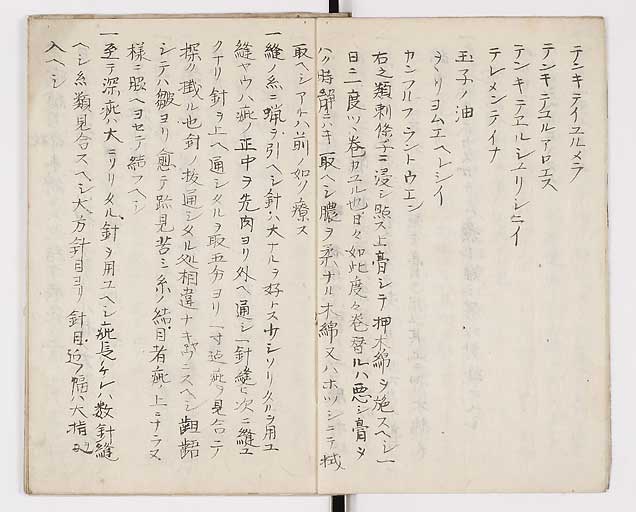 テンキテイユルメラ
テンキテユルアロエス
テンキテヱルシユリンニイ
テレメンテイナ
玉子ノ油
ヲヽリヨムエヘレシイ
カンフルフラントウエン
右之類刺係子ニ浸シ點ス上膏シテ押木綿ヲ施スヘシ一
日ニ二度ツヽ巻カユル也日々如此度々巻替ルハ悪シ膏ヲ
ハク時静ニハキ取ヘシ膿ヲ柔ナル木綿又ハホツシニテ拭
取ヘシアトハ前ノ如ク療ス
一縫ノ糸ニ蝋ヲ引ヘシ針ハ大ナルヲ好トス少シソリクルヲ用ユ
縫ヤウハ疵ノ正中ヲ先肉ヨリ外ヘ通シ一針縫ヒ次ニ縫ユ
クナリ針ヲ上ヘ通シタルヲ取五分ヨリ一寸迄疵ヲ見合テ
探ク識ル也針ノ抜通シタル処相違ナキヤウニスヘシ齟齬
シテハ皺ヨリ愈テ跡見苦シ糸ノ結目者疵ノ上ニナラヌ
様ニ脇ヘヨセテ結フヘシ
一至テ深疵ハ大ニソリタル針ヲ用ユヘシ疵長ケレハ数針縫
ヘシ糸類見合スヘシ大方針目ヨリ針目近フ隔ハ大指
入ヘシ